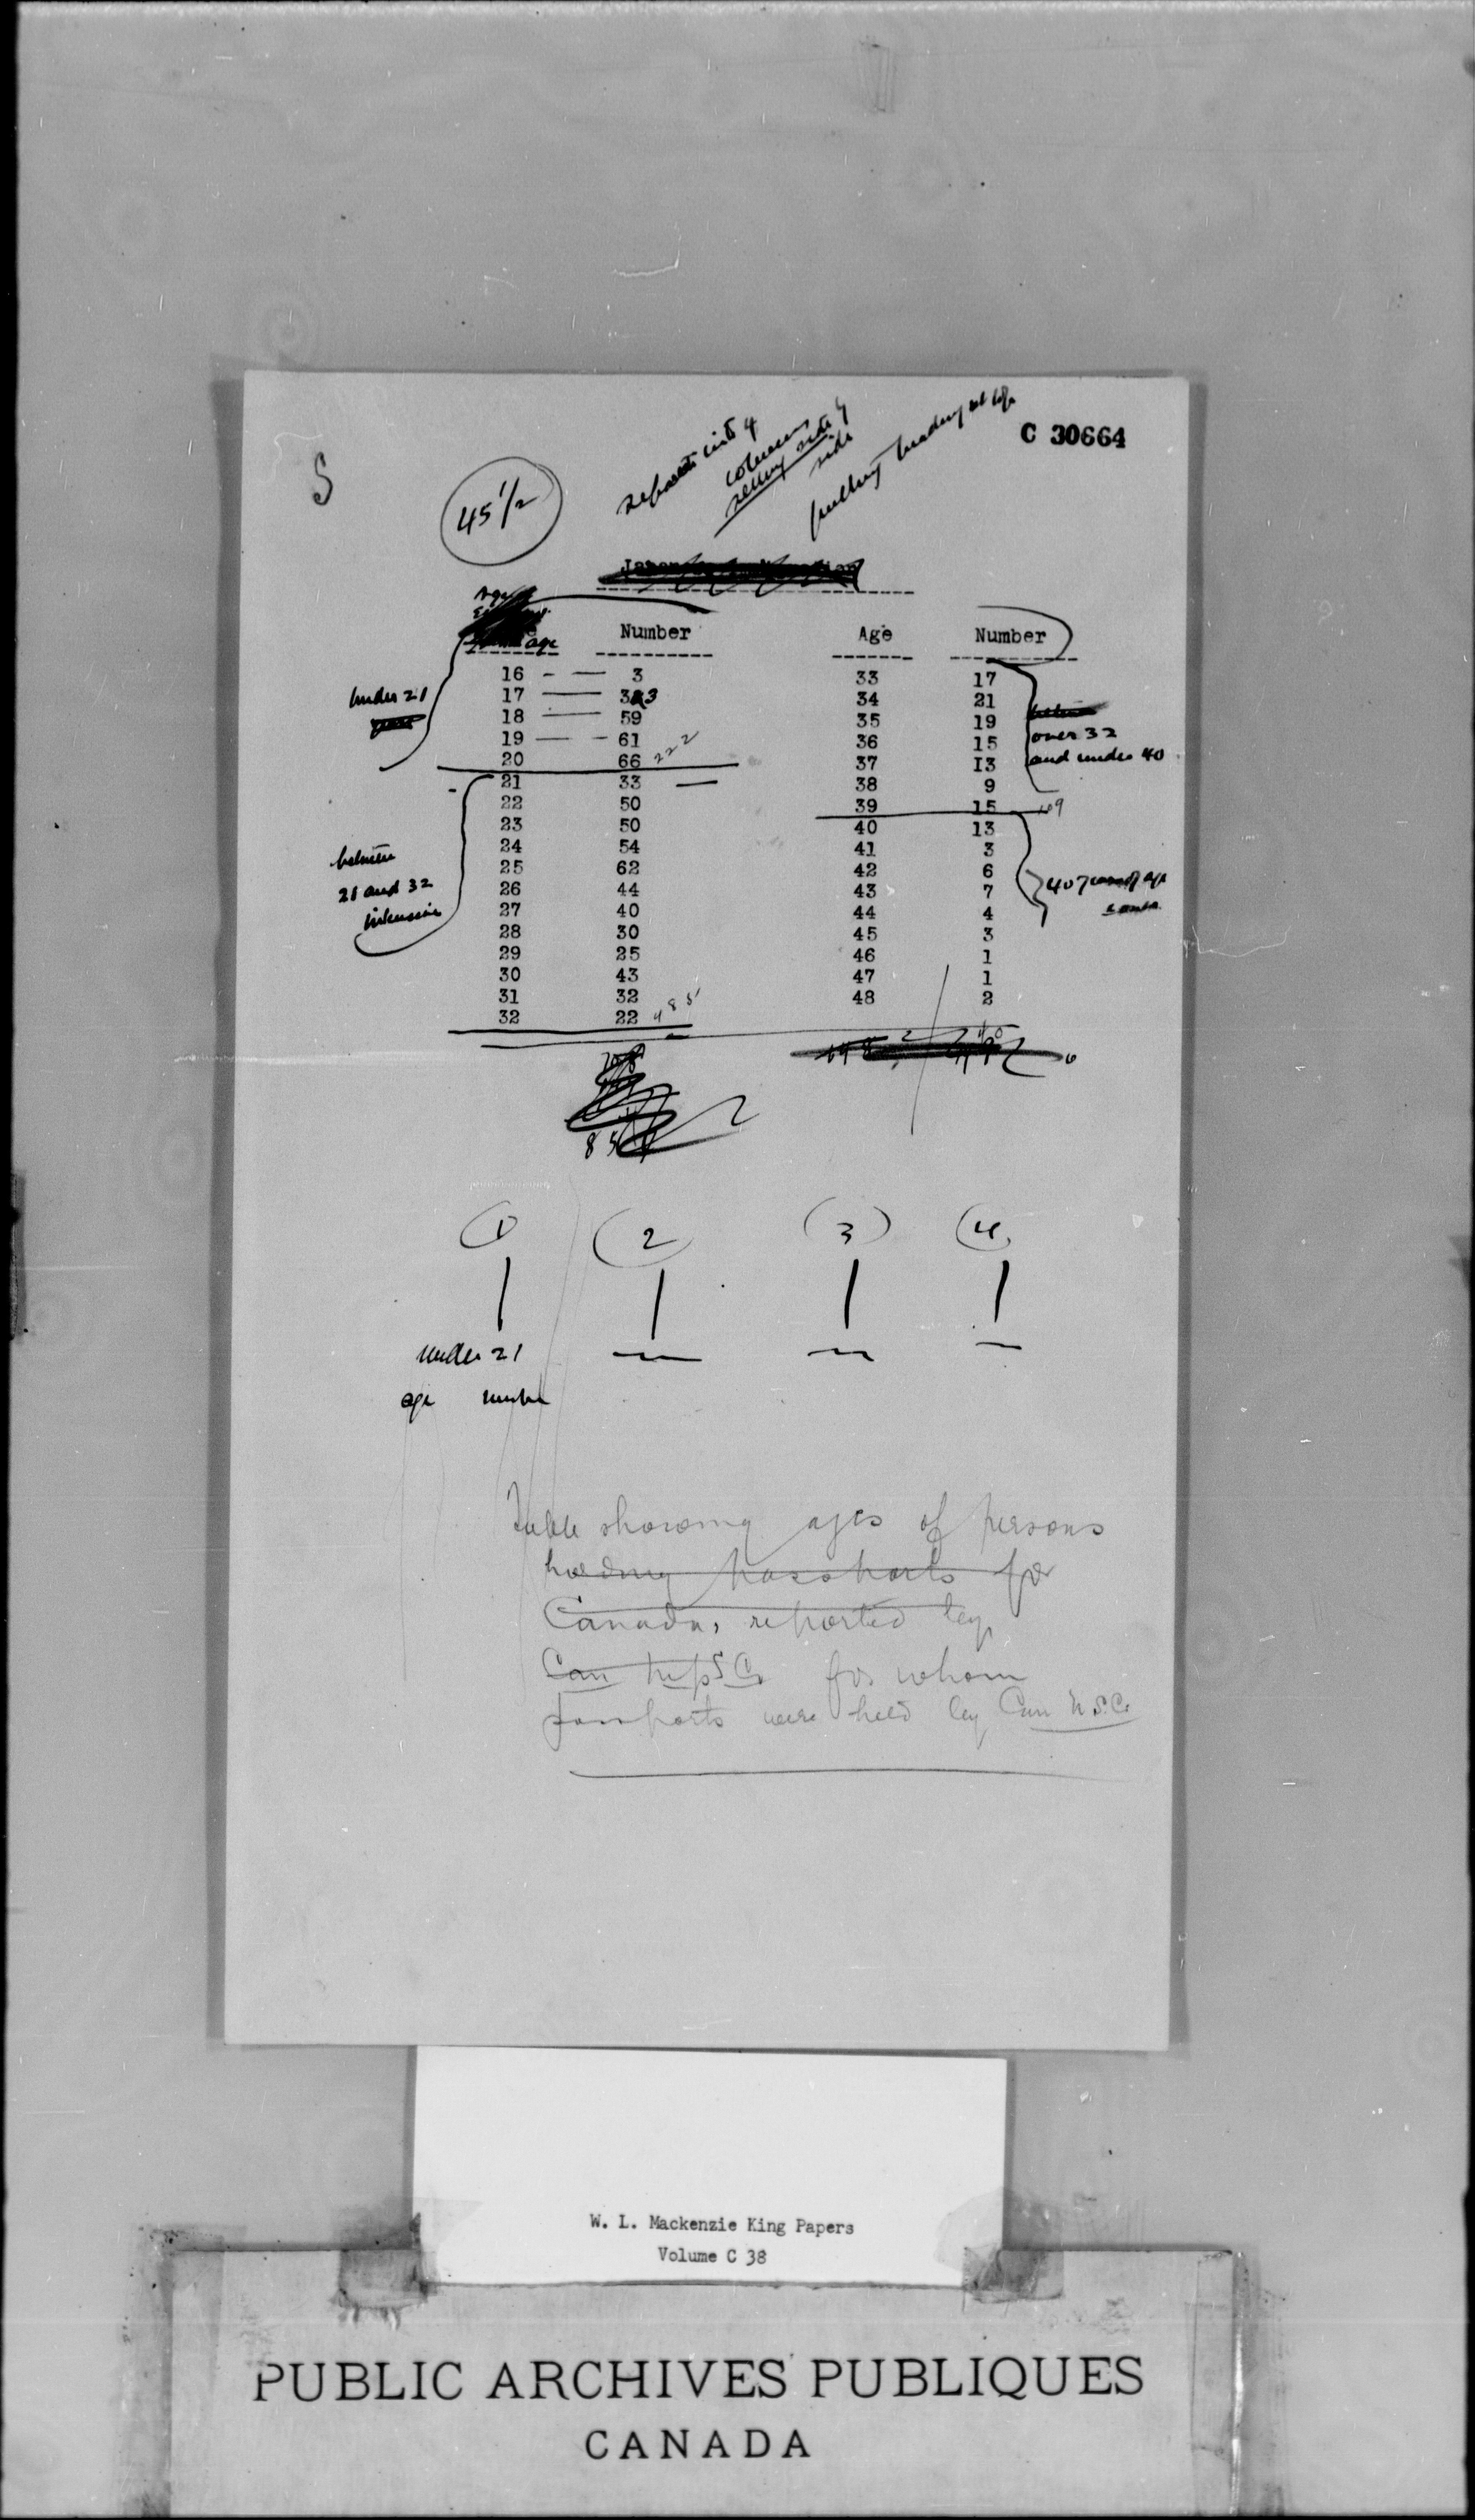 C 30664
S
45 1/2
separate into 4
columns
side
putting heading at top
Age
age Number Age Number
16 - — 3 33 17
17 — 33 34 21
18 — 59 35 19
19 — - 61 36 15
20 66 222 37 13
21 33 — 38 9
22 50 39 15 109
23 50 40 13
24 54 41 3
25 62 42 6
26 44 43 7
27 40 44 4
28 30 45 3
29 25 46 1
30 43 47 1
31 32 48 2
32 22 485 40
under 21
between
21 and 32
inclusive
over 32
and under 40
40 years of age
85
(1) (2) (3) (4)
under 21
age number
Table showing ages of persons
holding passports for
Canada, reported by
Can N S Co for whom
passports were held by Can N.S.Co
W. L. Mackenzie King Papers
Volume C 38
PUBLIC ARCHIVES PUBLIQUES
CANADA